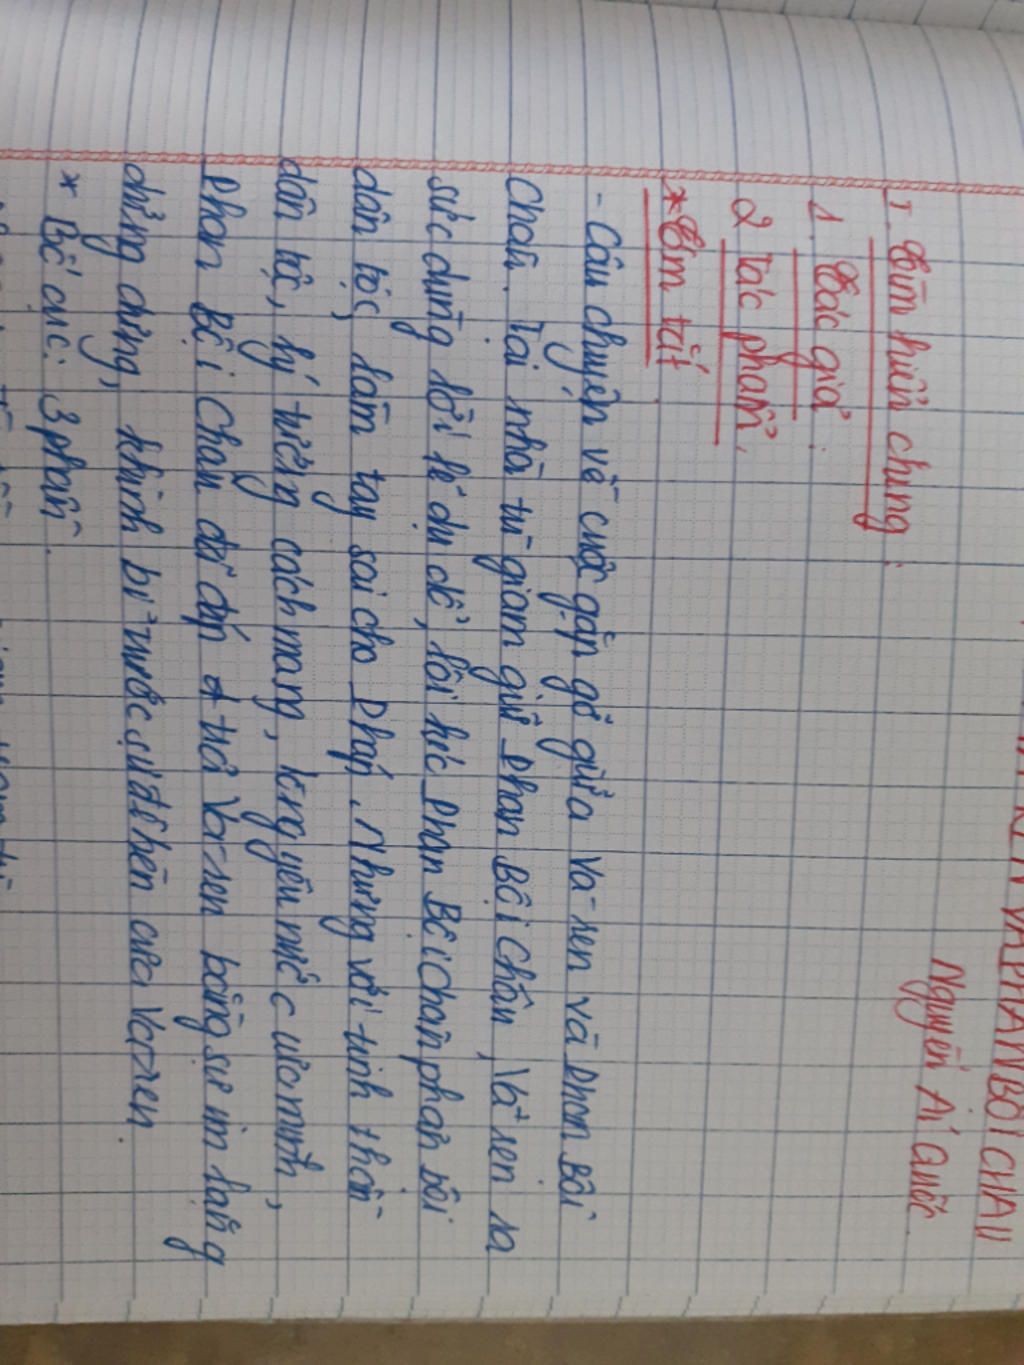 VÀ PHAN BỘI CHÂU
Nguyễn Ái Quốc
I. Tìm hiểu chung.
1. Tác giả.
2 Tác phẩm.
* Tóm tắt.
- Câu chuyện về cuộc gặp gỡ giữa Va-ren và Phan Bội
Châu. Tại nhà tù giam giữ Phan Bội Châu, Va-ren ra
sức dùng lời lẽ dụ dỗ, lôi kéo Phan Bội Châu phản bội
dân tộc, làm tay sai cho Pháp. Nhưng với tinh thần
dân tộc, lý tưởng cách mạng, lòng yêu nước của mình,
Phan Bội Châu đã đáp trả Va-ren bằng sự im lặng
dửng dưng, khinh bỉ trước sự đê hèn của Va-ren.
* Bố cục: 3 phần.